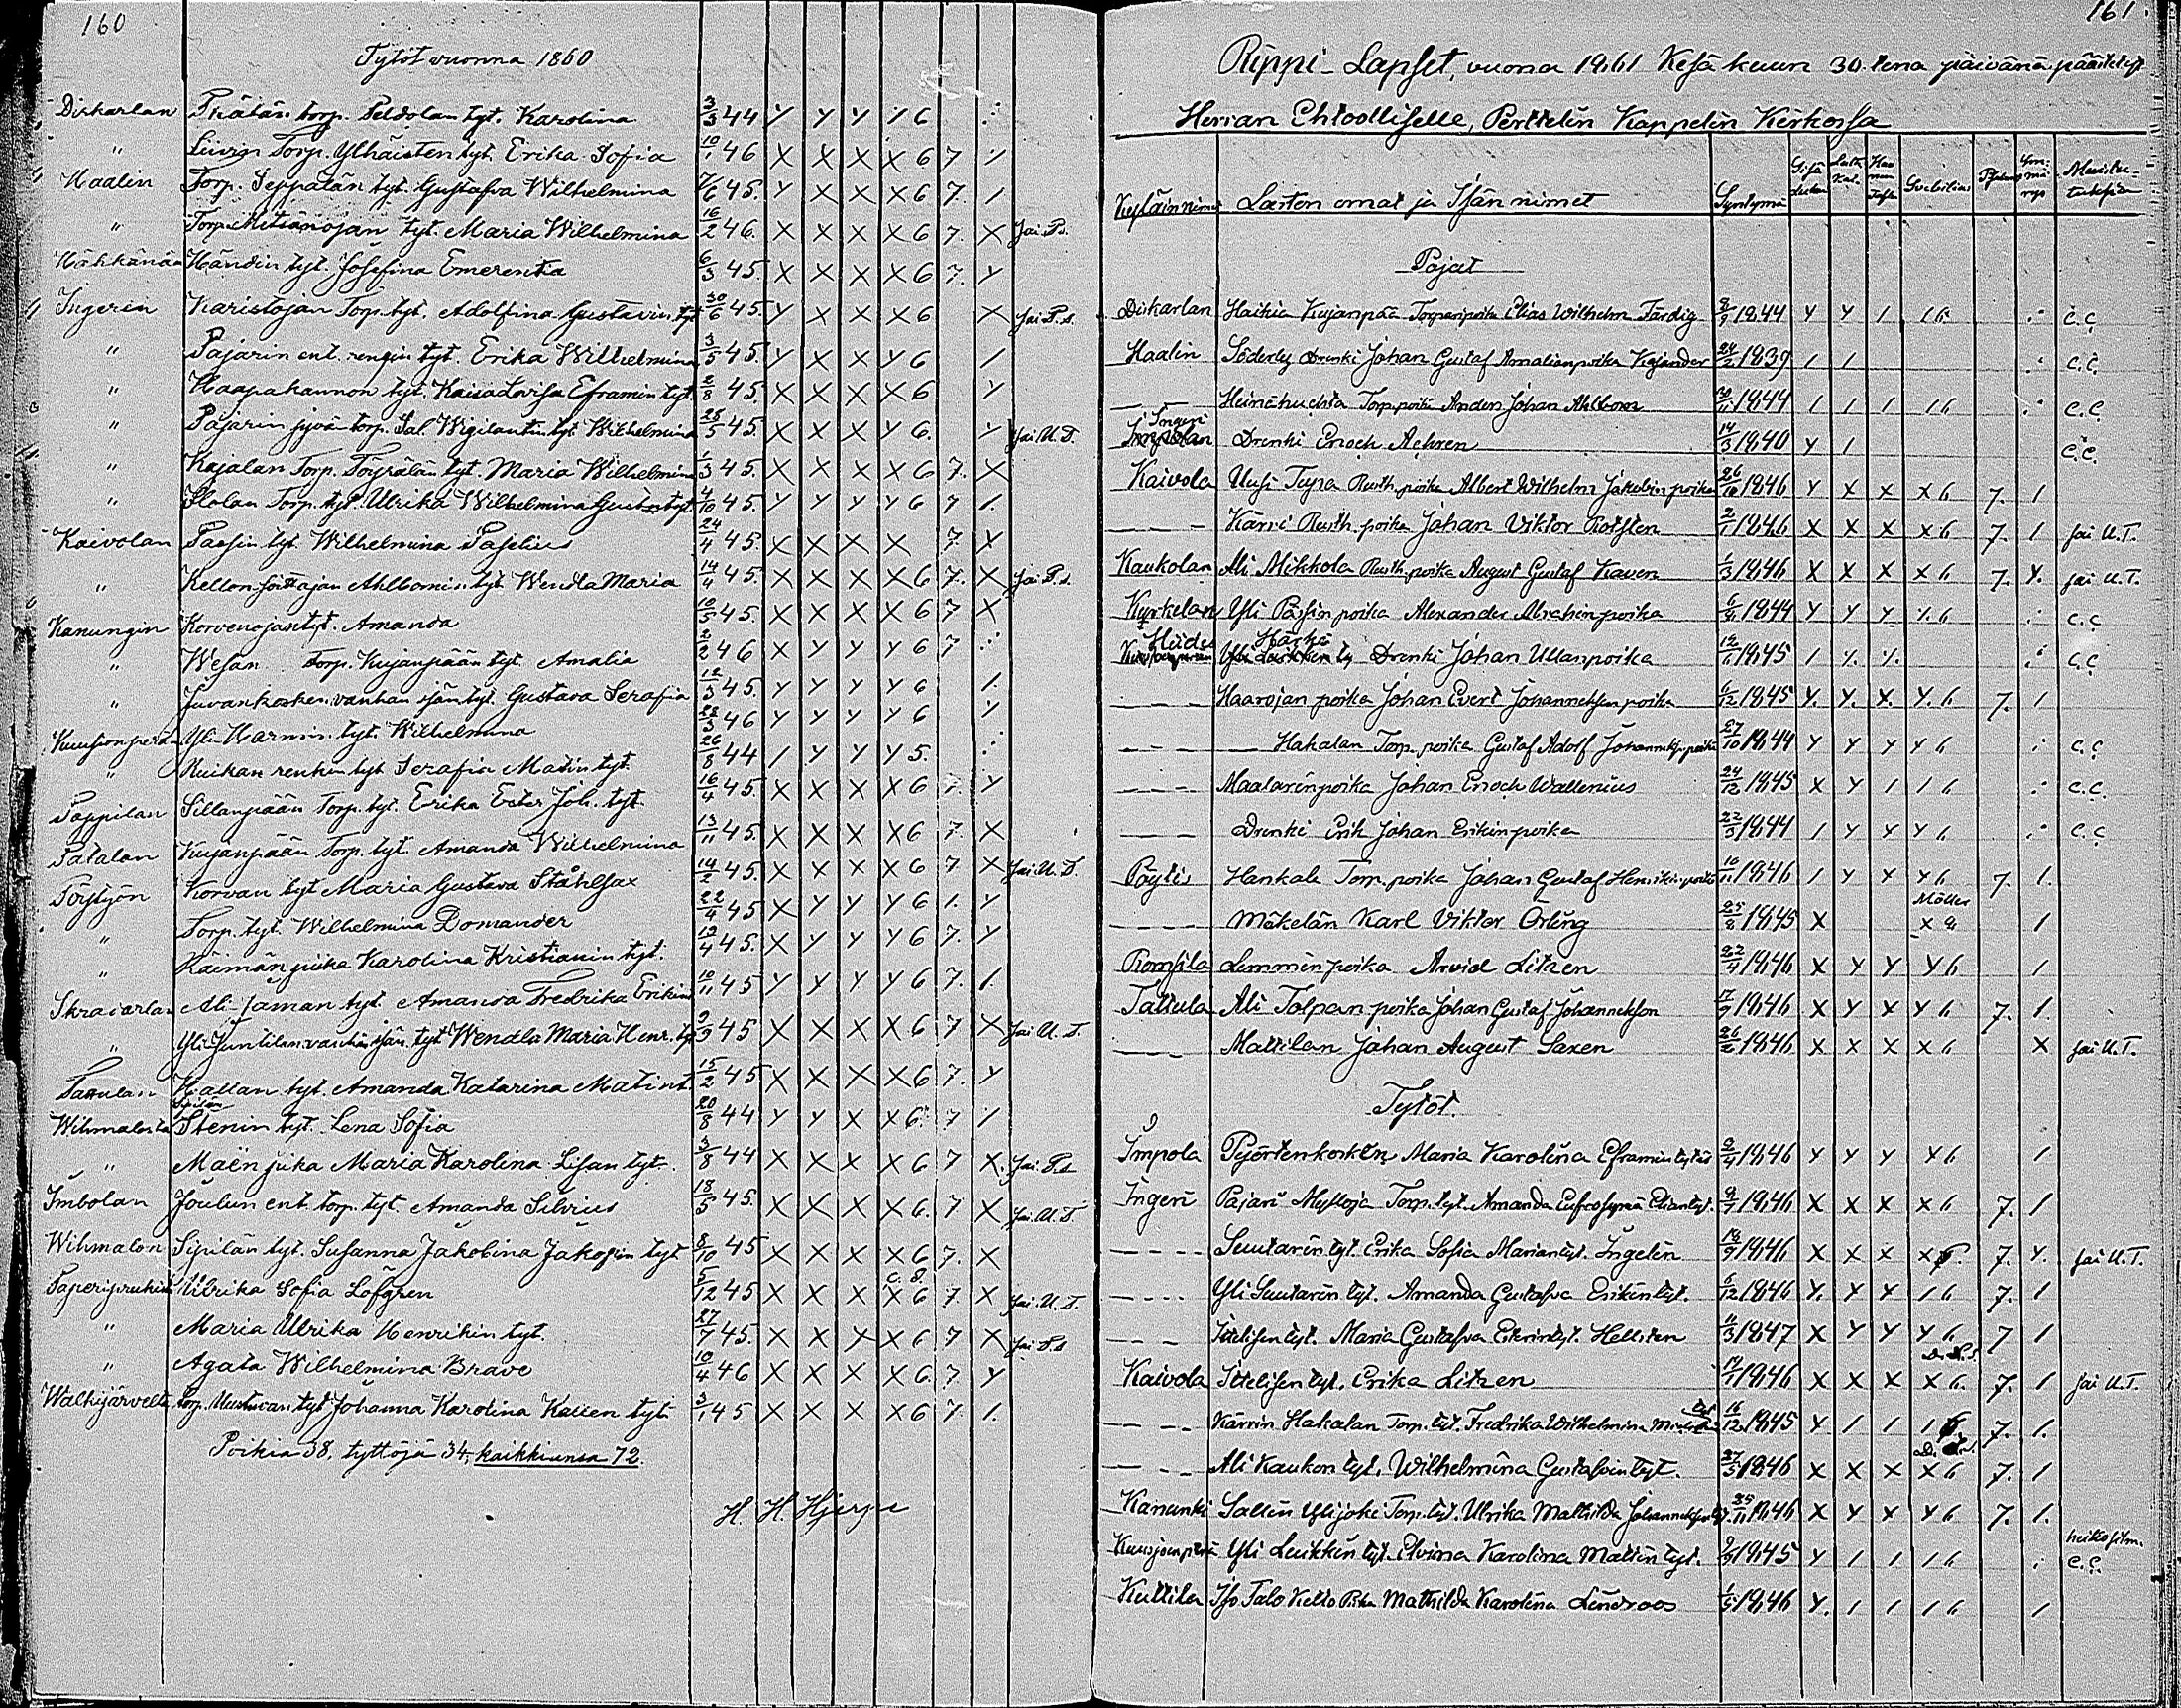 160
Tytöt vuonna 1860
Diskarlan Prätän torp. Peldolan tyt. Karolina 3/3 44 Y Y Y Y 6
" Torp. Ylhäisten tyt. Erika Sofia 10/1 46 X X X X 6 7 /
Haalin Torp. Seppälän tyt. Gustafva Wilhelmina 7/6 45. Y X X X 6 7. /
" Torp. Mitsänojan tyt. Maria Wilhelmina 16/2 46. X X X X 6 7. X Jai P.s.
Hähkänän Händin tyt. Josefina Emerentia 6/3 45. X X X X 6 7. Y
Ingerin Karistojan Torp. tyt. Adolfina Gustavin tyt 30/6 45. Y X X X 6 X Jai P.s.
" Pajarin ent. rengin tyt. Erika Wilhelmina 3/5 45. Y X X Y 6 /
" Haapakannon tyt. Kaisa Lovisa Eframin tyt. 2/8 45. X X X X 6 Y
" Pajarin jyvä torp. Sal. Wigilantin tyt. Wilhelmina 25/5 45. X X X Y 6. Y Jai U.T.
" Kajalan Torp. Töyrälän tyt. Maria Wilhelmina 1/3 45. X X X X 6 7. X
" Ilolan Torp. tyt. Ulrika Wilhelmina Gust. tyt. 4/10 45. Y Y Y Y 6 7 /.
Kaivolan Passin tyt. Wilhelmina Paselius 24/4 45. X X X X 7. X
" Kellonsoittajan Ahlbomin tyt. Wendla Maria 14/4 45. X X X X 6 7. X Jai P.s.
Kanungin Korvenojan tyt. Amanda 10/5 45. X X X X 6 7 X
" Wesan Torp. Kujanpään tyt. Amalia 2/2 46 X Y Y Y 6 7
" Juvankosken vanhan isän tyt. Gustava Serafia 12/3 45. Y Y Y Y 6 /.
Kuusjonperän Yli-Harmin tyt. Wilhelmina 28/3 46 Y Y Y Y 6 /
" Ruikan renkin tyt. Serafia Matin tyt. 26/8 44 / Y Y Y 5.
Pappilan Sillanpään Torp. tyt. Erika Ester Joh. tyt. 16/4 45. X X X X 6 7. Y
Patalan Kujanpään Torp. tyt. Amanda Wilhelmina 13/11 45. X X X X 6 7. X
Pöytyön Korvan tyt. Maria Gustava Ståhlfax 14/2 45. X X X X 6 7 X Jai U.T.
" Torp. tyt. Wilhelmina Domander 22/4 45 X Y Y Y 6 /. Y
" Räimän piika Karolina Kristianin tyt. 12/4 45. X Y Y Y 6 7. Y
Skravarlan Ali-Jaman tyt. Amanda Fredrika Erikin 10/11 45 Y Y Y Y 6 7. /.
" Yli Juntilan vanhan isän tyt. Wendla Maria Henr. tyt 9/9 45 X X X X 6 7. X Jai U.T.
Hallan tyt. Amanda Katarina Matin t. 15/2 45 X X X X 6 7. Y
Wihmalosta Stenin tyt. Lena Sofia 20/8 44 Y Y X X 6. 7 /
" Mäen piika Maria Karolina Lisan tyt. 3/8 44 X X X X 6 7 X. Jai P.s
Imbolan Joulun ent. torp. tyt. Amanda Silvius 18/5 45. X X X X 6. 7 X Jai U.T.
Wihmalon Sipilän tyt. Susanna Jakobina Jakopin tyt 8/10 45 X X X X 6 7. X
Paperipruukin Ulrika Sofia Löfgren 5/12 45 X X X X 6 7. X Jai U.T.
" Maria Ulrika Henrikin tyt. 27/7 45. X X X X 6 7 X Jai P.s
" Agata Wilhelmina Brave 10/4 46 X X X X 6. 7. Y
Walkijärvelta torp. tyt Johanna Karolina Kallen tyt. 3/1 45 X X X X 6 7. /.
Poikia 38, tyttöjä 34, kaikkiansa 72.
H. H. Hjerpe
161.
Rippi-Lapset, vuona 1861 Kesäkuun 30.tena päivänä päästetyt
Herran Ehtoolliselle, Perttelin Kappelin Kirkossa
Kyläin nimet Lasten omat ja Isän nimet Syntymä Sisä lukea Huo neen Taflu Svebilius Psalmi Ym- mär- rys Muistu- tuksia
Pojat
Diskarlan Haikia Kujanpää Torpanpoika Elias Wilhelm Färdig 8/9 1844 Y Y / / 6 C.C
Haalin Söderby Drenki Johan Gustaf Amalianpoika Kajander 24/2 1837 / / C.C.
Heinähuhta Torp. poika Anders Johan Ahlbom 30/11 1844 / / / / 6 C.C
Ingeri Drenki Enoch Achren 14/3 1840 Y / C.C.
Kaivola Uusi Tupa Rusth. poika Albert Wilhelm Jakobin poika 26/10 1846 Y X X X 6 7. /
Kärri Rusth. poika Johan Viktor Rotsten 2/1 1846 X X X X 6 7. / jai U.T.
Kaukolan Ali Mikkola Rusth. poika August Gustaf Kaven 1/3 1846 X X X X 6 7. Y. jai U.T.
Kyrkelan Yli Pässin poika Alexander Abrahin poika 6/4 1844 Y Y Y Y. 6 C.C
Hiides Härkä Drenki Johan Ullanpoika 12/6 1845 / Y. Y. C.C
Haarojan poika Johan Evert Johanneksen poika 6/12 1845 Y. Y. X. Y. 6 7. /
Hakalan Torp. poika Gustaf Adolf Johanneks. poika 27/10 1844 Y Y Y Y 6 C.C
Maalarin poika Johan Enoch Wallenius 24/12 1845 X Y / / 6 C.C.
Drenki Erik Johan Erikin poika 22/5 1844 / Y Y Y 6 C.C
Pöytiö Hankala Torp. poika Johan Gustaf Henrikin poika 10/11 1846 / Y X Y 6 7. /.
Mäkelän Karl Viktor Örling 25/8 1845 X Möller X /
Romsila Lemmin poika Arvid Litzen 22/4 1846 X Y Y Y 6 /
Tattula Ali Tolpan poika Johan Gustaf Johanneksen 17/9 1846 X Y X Y 6 7. /.
Mattilan Johan August Saxen 26/2 1846 X X X X 6 X jai U.T.
Tytöt.
Impola Pyörtenkosken Maria Karolina Eframin tytär 2/4 1846 Y Y Y X 6 /
Ingeri Pajari Myllyoja Torp. tyt. Amanda Eufrosyna Elian tyt. 9/7 1846 X X X X 6 7. /
Suutarin tyt. Erika Sofia Marian tyt. Ingelin 18/9 1846 X X X X 6. 7. Y. jai U.T.
Yli Suutarin tyt. Amanda Gustafva Erikin tyt. 5/12 1846 Y. X Y / 6 7. /
Itellisen tyt. Maria Gustafva tyt. Hellsten 11/3 1847 X Y Y Y 6 7 /
Kaivola Itellisen tyt. Erika Litzen 17/1 1846 X X X X 6. 7. / jai U.T.
Kärrin Hakalan Torp. tyt. Fredrika Wilhelmina tyt 16/12 1845 Y / / / 6 7. /.
Ali Kaukon tyt. Wilhelmina Gustafvin tyt. 27/5 1846 X X X X 6 7. /
Kanunki Sallin Ylijoki Torp. tyt. Ulrika Mathilda Johanneksen tyt. 25/11 1846 X Y X Y 6 7. /.
Kuusjoenperä Yli Luikkin tyt. Elvina Karolina Mattin tyt. 9/9 1845 Y / / / 6 C.C.
Kuttila Iso Talo Kello Piika Mathilda Karolina Lindroos 1/5 1846 Y. / / / 6 /